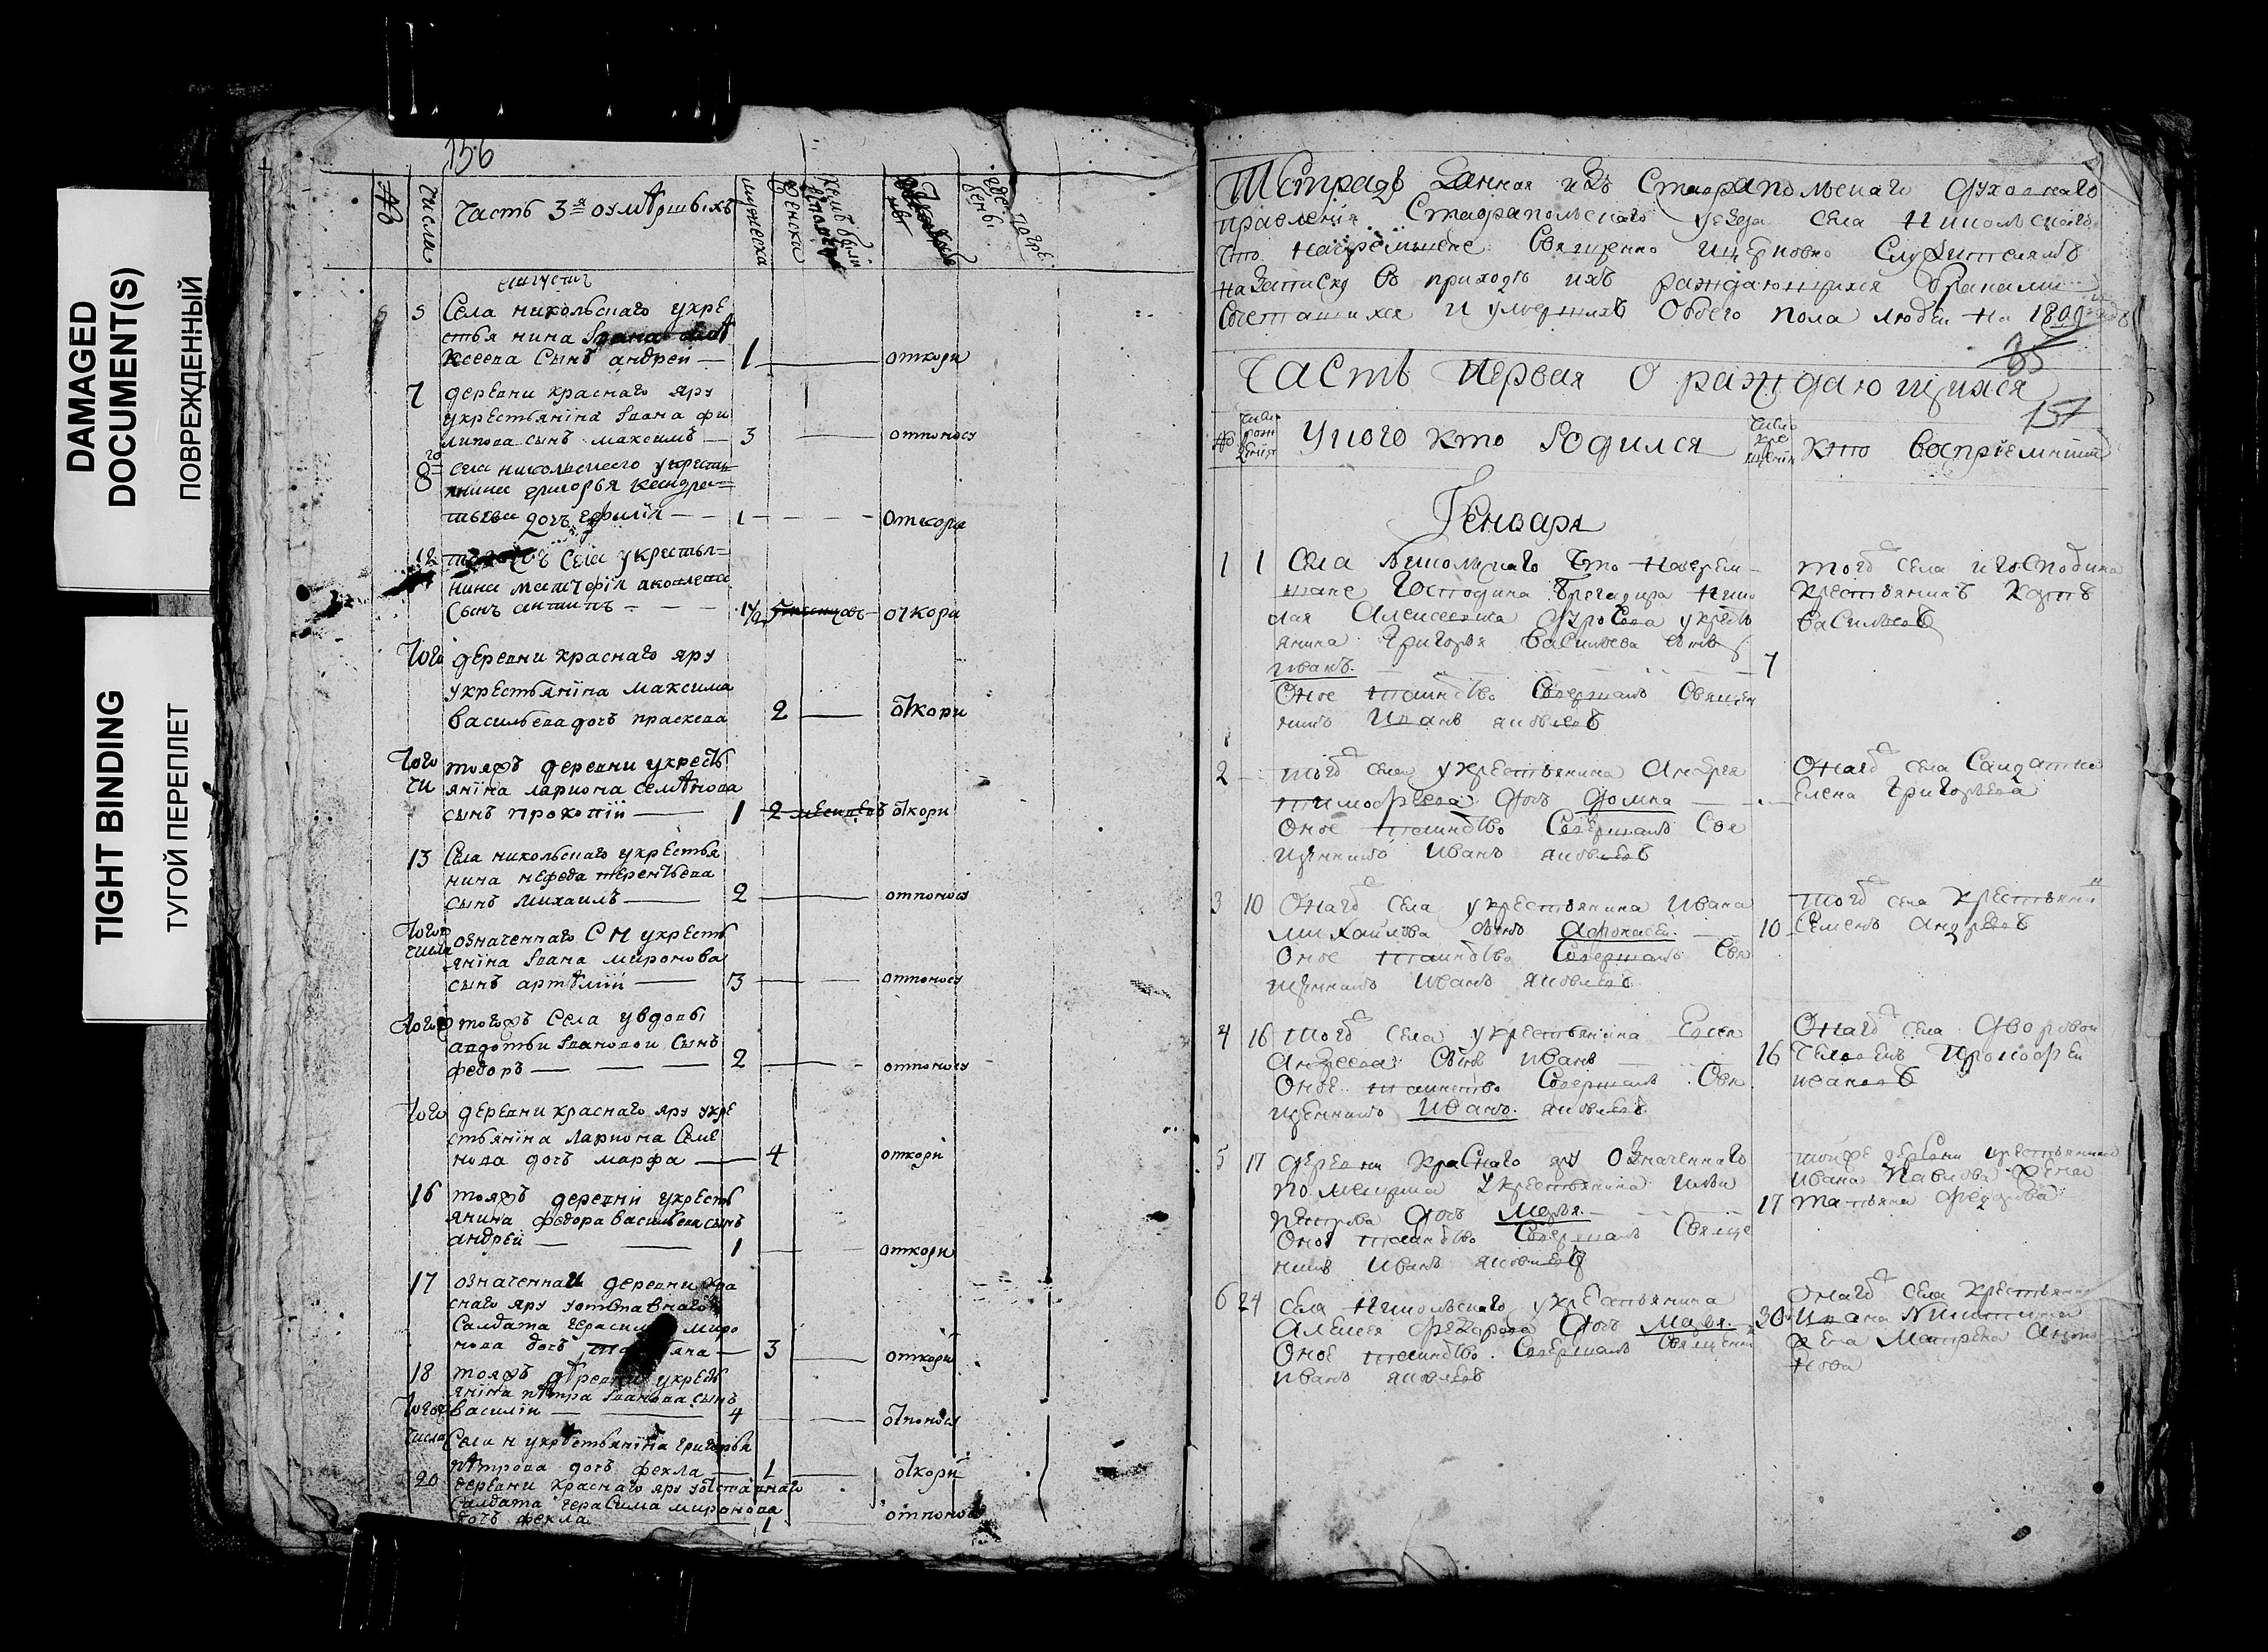 DAMAGED
DOCUMENT(S)
ПОВРЕЖДЕННЫЙ
TIGHT BINDING
ТУГОЙ ПЕРЕПЛЕТ
156
№
числа
Часть 3я оумѣршыхъ
мужеска
женски
августа
5 Села никольскаго укре
стьянина
сынъ андреи — 1 — откори
7 деревни краснаго яру
укрестьянїна їоана фи
липова сынъ максимъ — 3 — отпоносу
8го села никольскаго укресть
янина григорья кондра
тьева дочь — 1 — откори
12 села укрестья
нина
сынъ антипъ — 1/2 откори
того деревни краснаго яру
укрестьянїна максима
васильева дочь праскева 2 — откори
того чи тояжъ деревни укресть
янїна лариона семѣнова
сынъ прокопїй — 1 откори
13 Села никольскаго укрестья
нина нефеда терентьева
сынъ михаилъ — 2 — отпоносу
того числа означеннаго С Н укресть
янїна їоана миронова
сынъ артѣмїй — 3 — отпоносу
того тогожъ Села увдовы
авдотьи їоановои сынъ
федоръ — 2 — отпоносу
того деревни краснаго яру укре
стьянїна лариона семе
нова дочь марфа — 4 откори
16 тояжъ деревни укресть
янина федора васильева сынъ
андреи — 1 — откори
17 означеннаи деревни кра
снаго яру уотставнаго
салдата герасима миро
нова дочь — 3 — откори
18 тояжъ деревни укресть
янїна пѣтра їоанова сынъ
василїи — 4 — отпоносу
того числа Села н укрестьянїна григорья
пѣтрова дочь фекла — 1 — откори
20 деревни краснаго яру уотставнаго
салдата герасима миронова
дочь фекла 1 отпоносу
Тетрадь данная изъ Ставрапольскаго духовнаго
правленїя Ставрапольскаго уезда села Никольскаго
что Начеремшане Священно ицерковно Служителямъ
на Записку въ приходѣ ихъ раждающихся браками
Сочетавшихся и умершихъ Обоего пола людеи на 1800 годъ
85
Часть Первая О раждающихся
157
№ число рожденїя Укого кто Родился число крещенїя Кто воспрїемники
Генваря
1 1 Села Никольскаго Что Начерем
шане Господина Брегадира Нико
лая Алексеевича Дурасова укресть
янина Григорья Васильева сынъ
Иванъ. 7
Оное таинство Совершалъ Священ
никъ Иванъ яковлевъ
тогожъ села игосподина
Крестьянинъ Карпъ
Васильевъ
2 тогожъ села укрестьянина Андрея
тимофеева дочь Домна —
Оное таинство Совершалъ Свя
щенникъ Иванъ яковлевъ
Онагожъ села Салдатка
Елена Григорьева
3 10 Онагожъ Села укрестьянина Ивана
михайлова сынъ Афонасей. — 10
Оное таинство Совершалъ Свя
щенникъ Иванъ яковлевъ
тогожъ села Крестьянинъ
Семенъ Андреевъ
4 16 тогожъ села укрестьянина
Андреева Сынъ Иванъ 16
Оное таинство Совершалъ Свя
щенникъ Иванъ яковлевъ
Онагожъ села Дворовой
Человекъ Прокофеи
ивановъ
5 17 деревни Краснаго яру Означеннаго
помещика укрестьянина
петрова дочь Марья. 17
Оное таинство Совершалъ Свяще
никъ Иванъ яковлевъ
тойже деревни крестьянина
Ивана Павлова жена
татьяна Федорова
6 24 Села Никольскаго укрестьянина
Алексея Федорова дочь Марья. 30
Оное таинство Совершалъ Священн
Иванъ яковлевъ
Онагожъ Села Крестьянина
Ивана Никитина
жена Матрена